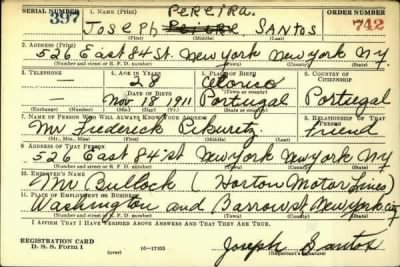 SERIAL NUMBER 397 1. NAME (Print) PEREIRA. ORDER NUMBER 742
JOSEPH SANTOS
(First) (Middle) (Last)
2. ADDRESS (Print)
526 East 84 St. New York New York N.Y.
(Number and street or R. F. D. number) (Town) (County) (State)
3. TELEPHONE 4. AGE IN YEARS 5. PLACE OF BIRTH 6. COUNTRY OF CITIZENSHIP
— 28
DATE OF BIRTH (Town or county)
— Nov 18 1911 Portugal Portugal
(Exchange) (Number) (Mo.) (Day) (Yr.) (State or country)
7. NAME OF PERSON WHO WILL ALWAYS KNOW YOUR ADDRESS 8. RELATIONSHIP OF THAT PERSON
Mr Frederick Friend
(Mr., Mrs., Miss) (First) (Middle) (Last)
9. ADDRESS OF THAT PERSON
526 East 84 St New York New York NY
(Number and street or R. F. D. number) (Town) (County) (State)
10. EMPLOYER'S NAME
Mr Bullock (Horton Motor Lines)
11. PLACE OF EMPLOYMENT OR BUSINESS
Washington and Barrow St New York City
(Number and street or R. F. D. number) (Town) (County) (State)
I AFFIRM THAT I HAVE VERIFIED ABOVE ANSWERS AND THAT THEY ARE TRUE.
REGISTRATION CARD
D. S. S. Form 1 (over) 16—17105 Joseph Santos
(Registrant's signature)